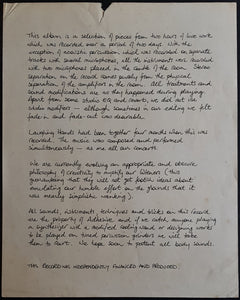 This album is a selection of pieces from two hours of live work
which was recorded over a period of two days. With the
exception of acoustic percussion, which was recorded on separate
tracks with several microphones, all the instruments were recorded
with two microphones placed in the centre of the room. Stereo
separation on the record comes purely from the physical
separation of the amplifiers in the room. All treatments and
sound modifications are as they happened during playing.
Apart from some studio EQ and reverb, we did not use
studio mixing — although sometimes in our editing we felt
fade-in and fade-out was desirable.
Laughing Hands had been together four months when this was
recorded. The music was composed and performed
simultaneously — as are all our concerts.
We are currently evolving an appropriate and obscure
philosophy of creativity to mystify our listeners (this
guaranteeing that they will not get foolish ideas about
emulating our humble effort on the grounds that it
was merely simplistic wanking).
All sounds, instruments, techniques and tricks on this record
are the property of Adhesive, and if we catch anyone playing
a synthesizer with a modified coat or designing works
to be played on tined percussion genders we will take
them to court. We hope soon to patent all body sounds.
THIS RECORD WAS INDEPENDENTLY FINANCED AND PRODUCED.